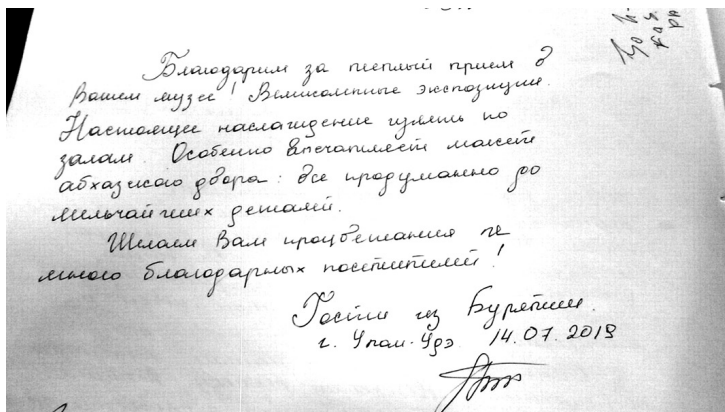 Благодарим за теплый прием в
Вашем музее! Великолепные экспозиции.
Настоящее наслаждение гулять по
залам. Особенно впечатляет макет
абхазского двора: все продуманно до
мельчайших деталей.
Желаем Вам процветания и
много благодарных посетителей!
Гости из Бурятии.
г. Улан-Удэ 14.07.2019